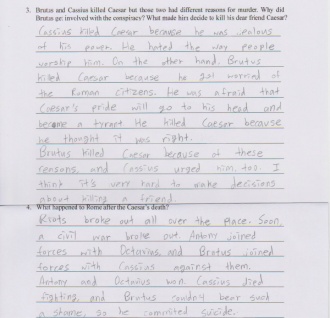 3. Brutus and Cassius killed Caesar but those two had different reasons for murder. Why did
Brutus get involved with the conspiracy? What made him decide to kill his dear friend Caesar?
Cassius killed Caesar because he was jealous
of his power. He hated the way people
worship him. On the other hand, Brutus
killed Caesar because he got worried of
the Roman citizens. He was afraid that
Caesar's pride will go to his head and
become a tyrant He killed Caesar because
he thought it was right.
Brutus killed Caesar because of these
reasons, and Cassius urged him, too. I
think it's very hard to make decisions
about killing a friend.
4. What happened to Rome after the Caesar's death?
Riots broke out all over the place. Soon
a civil war broke out. Antony joined
forces with Octavius, and Brutus joined
forces with Cassius against them.
Antony and Octavius won. Cassius died
fighting, and Brutus couldn't bear such
a shame, so he committed suicide.